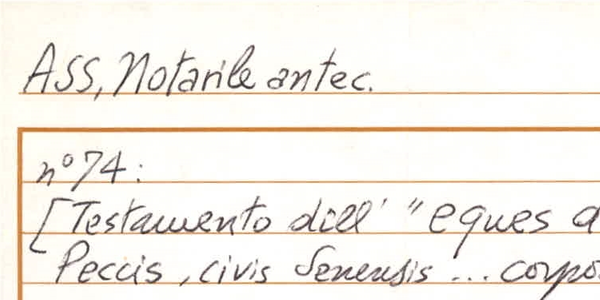 ASS, Notarile antec.
n° 74:
[Testamento dell' "eques a
Peccis, civis Senensis ... corpo